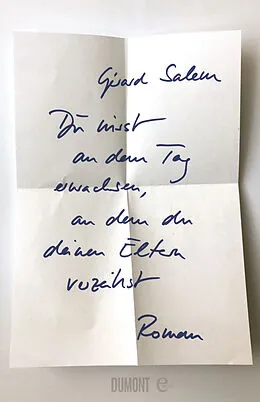 Gérard Salem
Du wirst
an dem Tag
erwachsen,
an dem du
deinen Eltern
verzeihst
Roman
DUMONT e